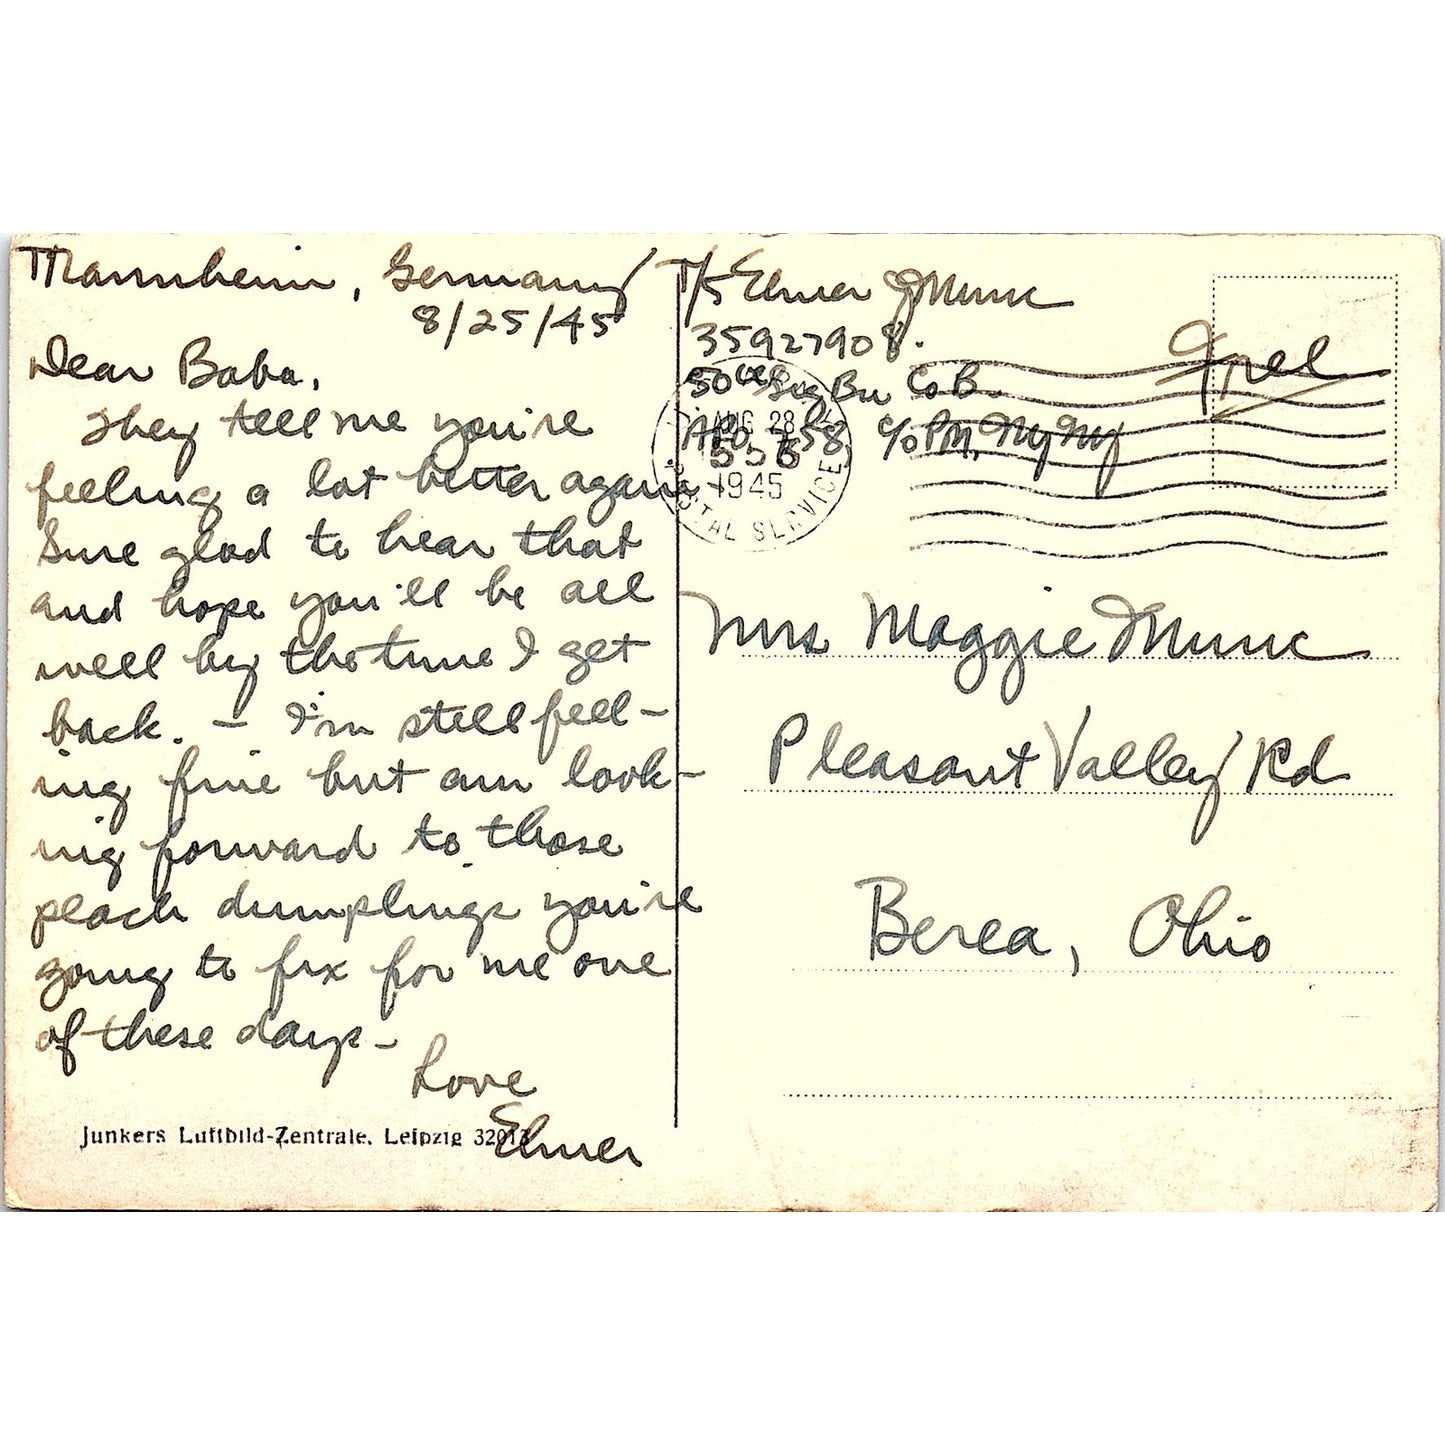 Mannheim, Germany
8/25/45
Dear Baba,
They tell me you're
feeling a lot better again -
Sure glad to hear that
and hope you'll be all
well by the time I get
back. - I'm still feel-
ing fine but am look-
ing forward to those
peach dumplings you're
going to fix for me one
of these days -
Love
Elmer
Junkers Luftbild-Zentrale, Leipzig 32013
T/5 Elmer J Munc
35927908.
Sig Bn Co B.
APO 758 c/o PM, NY NY
Free
AUG 28
1945
POSTAL SERVICE
Mrs Maggie Munc
Pleasant Valley Rd
Berea, Ohio